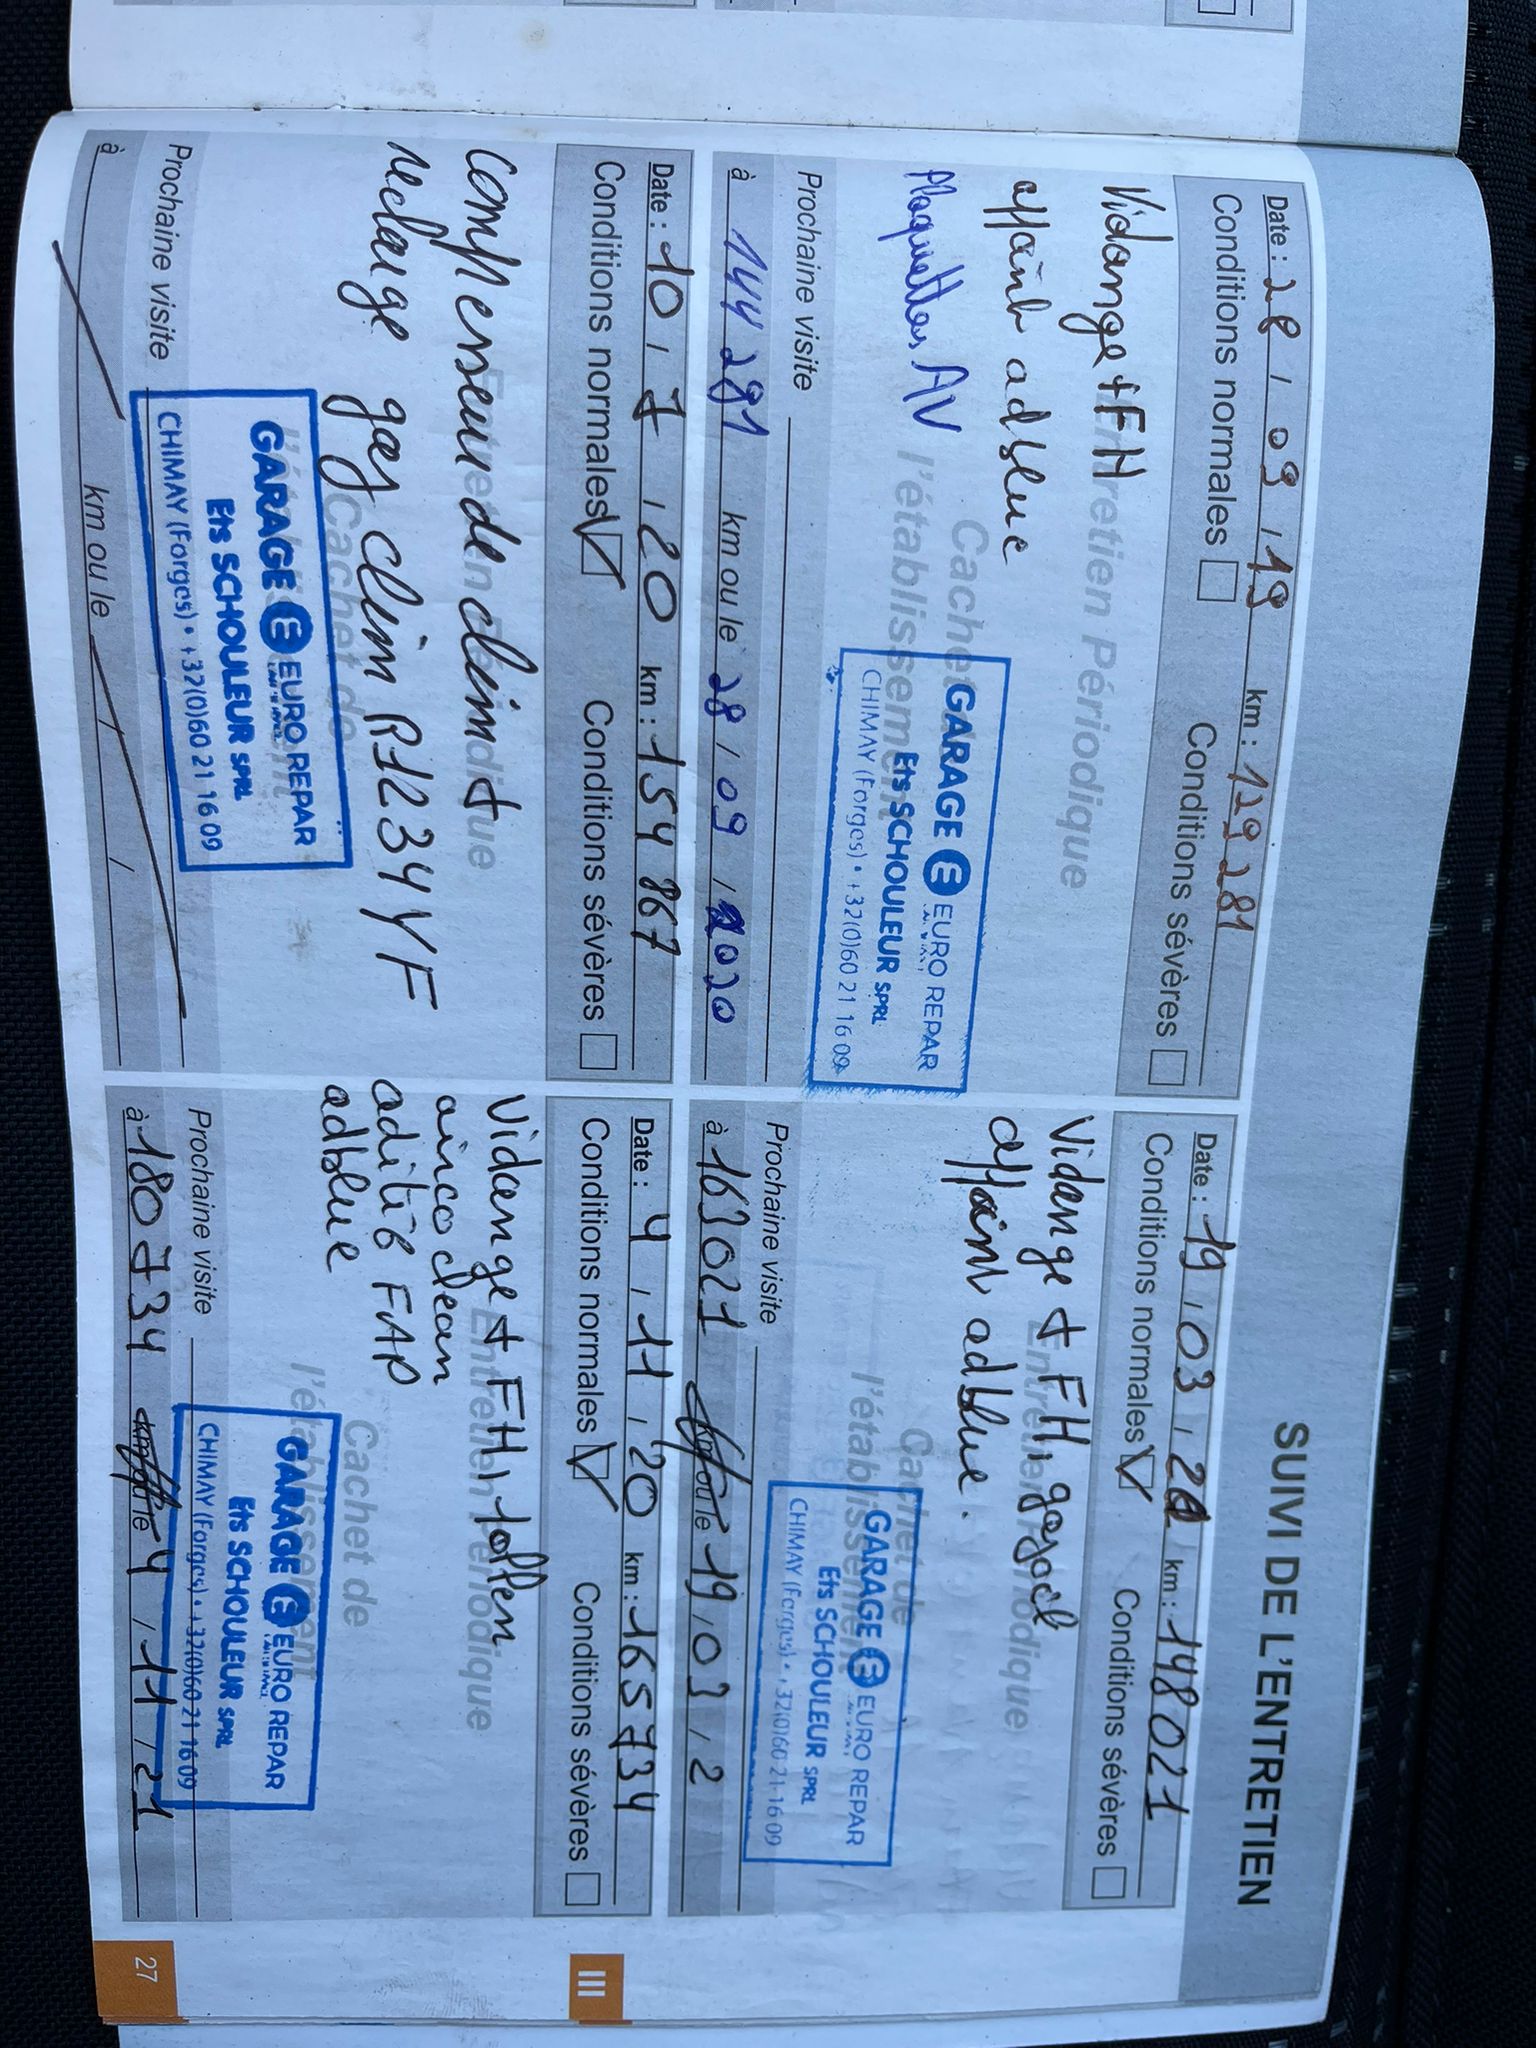 SUIVI DE L'ENTRETIEN
Date : 28 / 09 / 19 km : 129 281
Conditions normales Conditions sévères
Entretien Périodique
Vidange + FH
appoint adblue
Plaquettes AV
Cachet de
l'établissement
GARAGE EURO REPAR
Ets SCHOULEUR SPRL
CHIMAY (Forges) • +32(0)60 21 16 09
Prochaine visite
à 144 281 km ou le 28 / 09 / 2020
Date : 19 / 03 / 20 km : 148021
Conditions normales Conditions sévères
Entretien Périodique
Vidange + FH, gasoil
appoint adblue.
Cachet de
l'établissement
GARAGE EURO REPAR
Ets SCHOULEUR SPRL
CHIMAY (Forges) • +32(0)60 21 16 09
Prochaine visite
à 163021 km ou le 19 / 03 / 2
Date : 10 / 7 / 20 km : 154 867
Conditions normales Conditions sévères
Entretien Périodique
compresseur de clim +
recharge gaz clim R1234YF
Cachet de
l'établissement
GARAGE EURO REPAR
Ets SCHOULEUR SPRL
CHIMAY (Forges) • +32(0)60 21 16 09
Prochaine visite
à km ou le / /
Date : 4 / 11 / 20 km : 165734
Conditions normales Conditions sévères
Entretien Périodique
Vidange + FH, pollen
airco clean
additif FAP
adblue
Cachet de
l'établissement
GARAGE EURO REPAR
Ets SCHOULEUR SPRL
CHIMAY (Forges) • +32(0)60 21 16 09
Prochaine visite
à 180734 km ou le 4 / 11 / 21
III
27